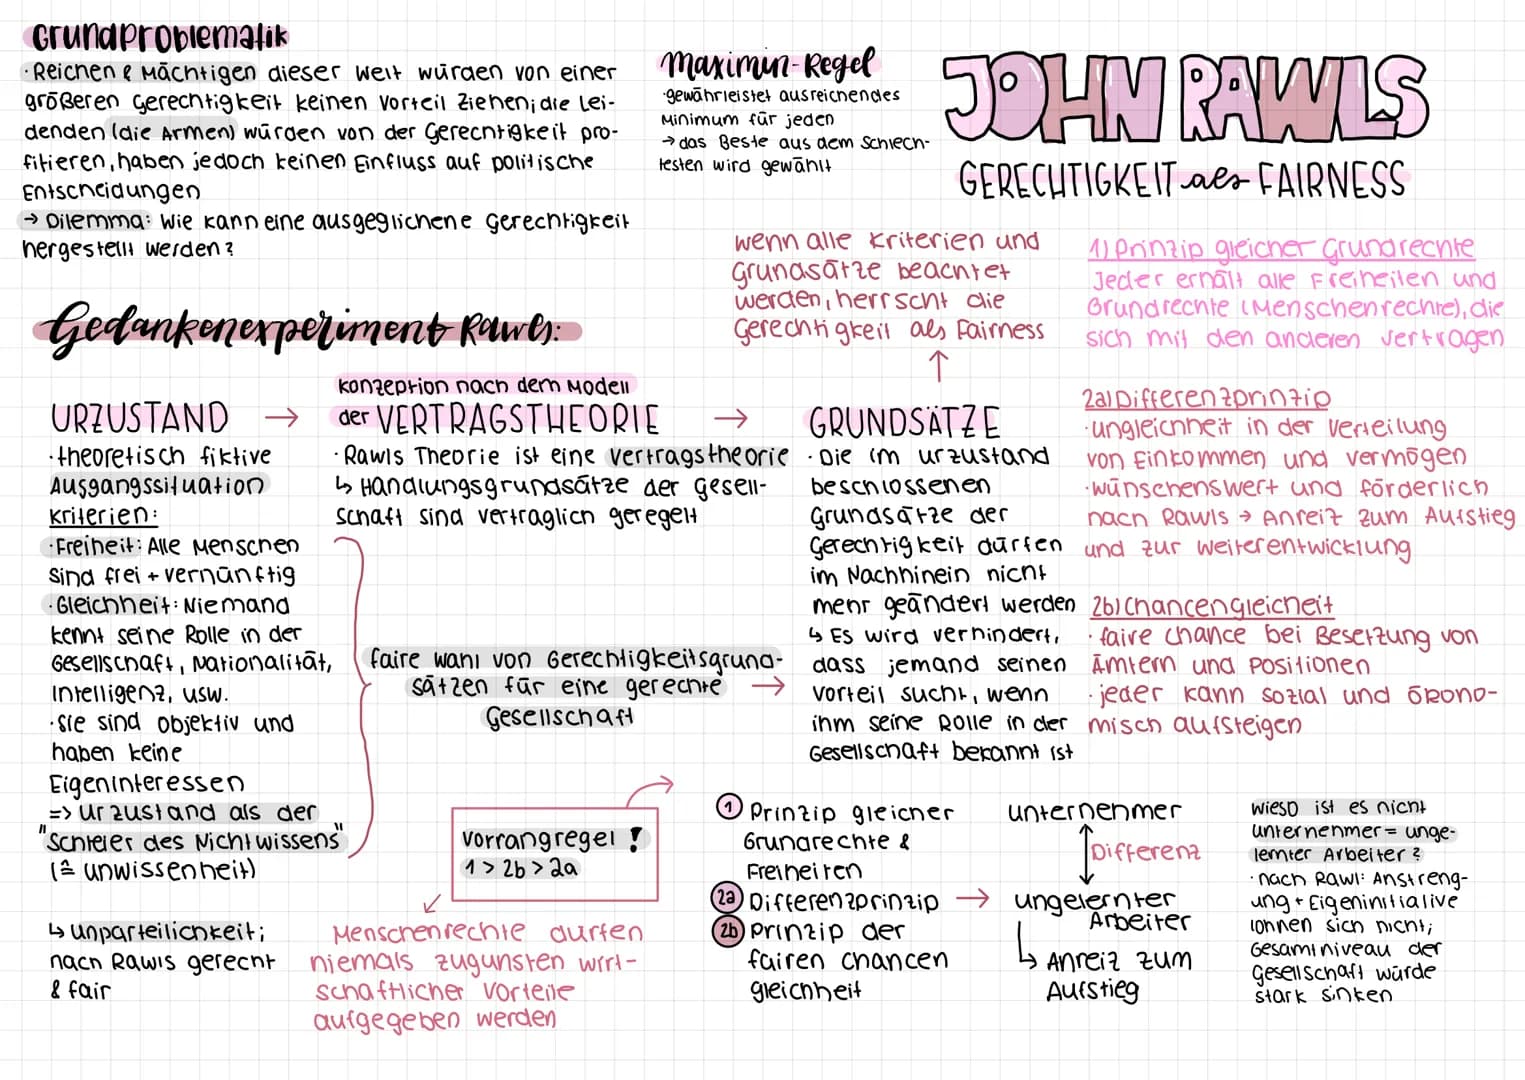 Grundproblematik
· Reichen & Mächtigen dieser Welt würden von einer
größeren Gerechtigkeit keinen Vorteil ziehen; die Lei-
denden (die Armen) würden von der Gerechtigkeit pro-
fitieren, haben jedoch keinen Einfluss auf politische
Entscheidungen
→ Dilemma: Wie kann eine ausgeglichene Gerechtigkeit
hergestellt werden?
Maximin-Regel
· gewährleistet ausreichendes
Minimum für jeden
→ das Beste aus dem Schlech-
testen wird gewählt
JOHN RAWLS
GERECHTIGKEIT als FAIRNESS
Gedankenexperiment Rawls:
URZUSTAND →
· theoretisch fiktive
Ausgangssituation
Kriterien:
· Freiheit: Alle Menschen
sind frei + vernünftig
· Gleichheit: Niemand
kennt seine Rolle in der
Gesellschaft, Nationalität,
Intelligenz, usw.
· Sie sind objektiv und
haben keine
Eigeninteressen
=> Urzustand als der
"Schleier des Nichtwissens"
(≙ Unwissenheit)
↳ Unparteilichkeit;
nach Rawls gerecht
& fair
Konzeption nach dem Modell
der VERTRAGSTHEORIE →
· Rawls Theorie ist eine Vertragstheorie
↳ Handlungsgrundsätze der Gesell-
schaft sind vertraglich geregelt
faire Wahl von Gerechtigkeitsgrund-
sätzen für eine gerechte →
Gesellschaft
Vorrangregel !
1 > 2b > 2a
Menschenrechte dürfen
niemals zugunsten wirt-
schaftlicher Vorteile
aufgegeben werden
wenn alle Kriterien und
Grundsätze beachtet
werden, herrscht die
Gerechtigkeit als Fairness
↑
GRUNDSÄTZE
· Die im Urzustand
beschlossenen
Grundsätze der
Gerechtigkeit dürfen
im Nachhinein nicht
mehr geändert werden
↳ Es wird verhindert,
dass jemand seinen
Vorteil sucht, wenn
ihm seine Rolle in der
Gesellschaft bekannt ist
1) Prinzip gleicher Grundrechte
Jeder erhält alle Freiheiten und
Grundrechte (Menschenrechte), die
sich mit den anderen vertragen
2a) Differenzprinzip
· Ungleichheit in der Verteilung
von Einkommen und Vermögen
· wünschenswert und förderlich
nach Rawls → Anreiz zum Aufstieg
und zur Weiterentwicklung
2b) Chancengleicheit
· faire Chance bei Besetzung von
Ämtern und Positionen
· jeder kann sozial und ökono-
misch aufsteigen
1 Prinzip gleicher
Grundrechte &
Freiheiten
2a Differenzprinzip →
2b Prinzip der
fairen Chancen
gleichheit
Unternehmer
Differenz
ungelernter
Arbeiter
↳ Anreiz zum
Aufstieg
Wieso ist es nicht
Unternehmer = unge-
lernter Arbeiter?
· nach Rawl: Anstreng-
ung + Eigeninitialive
lohnen sich nicht;
Gesamtniveau der
Gesellschaft würde
stark sinken